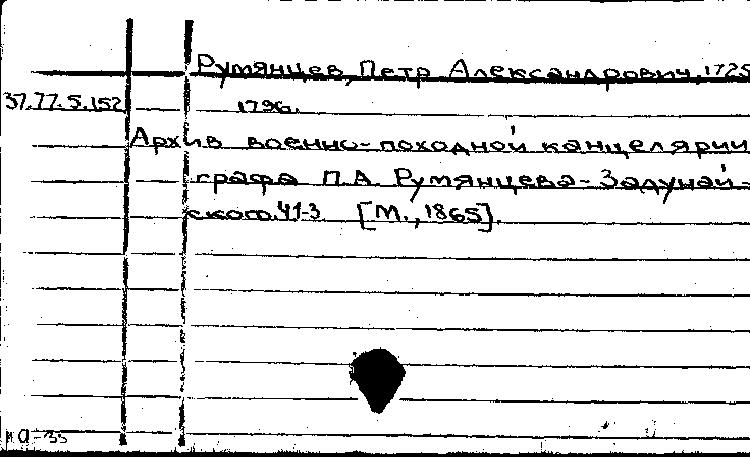 Румянцев, Петр Александрович, 1725
37.77.5.152 1796.
Архив военно-походной канцелярии
графа П.А. Румянцева-Задунай-
ского. Ч1-3 [М., 1865].